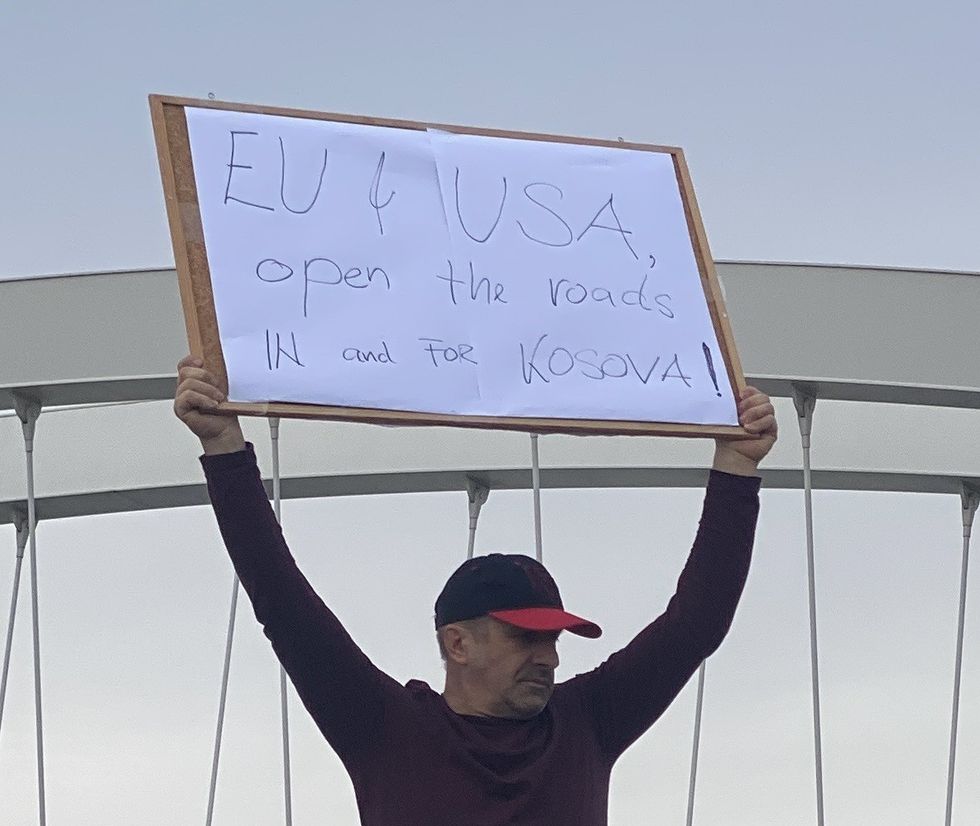 EU & USA,
open the roads
IN and FOR KOSOVA!